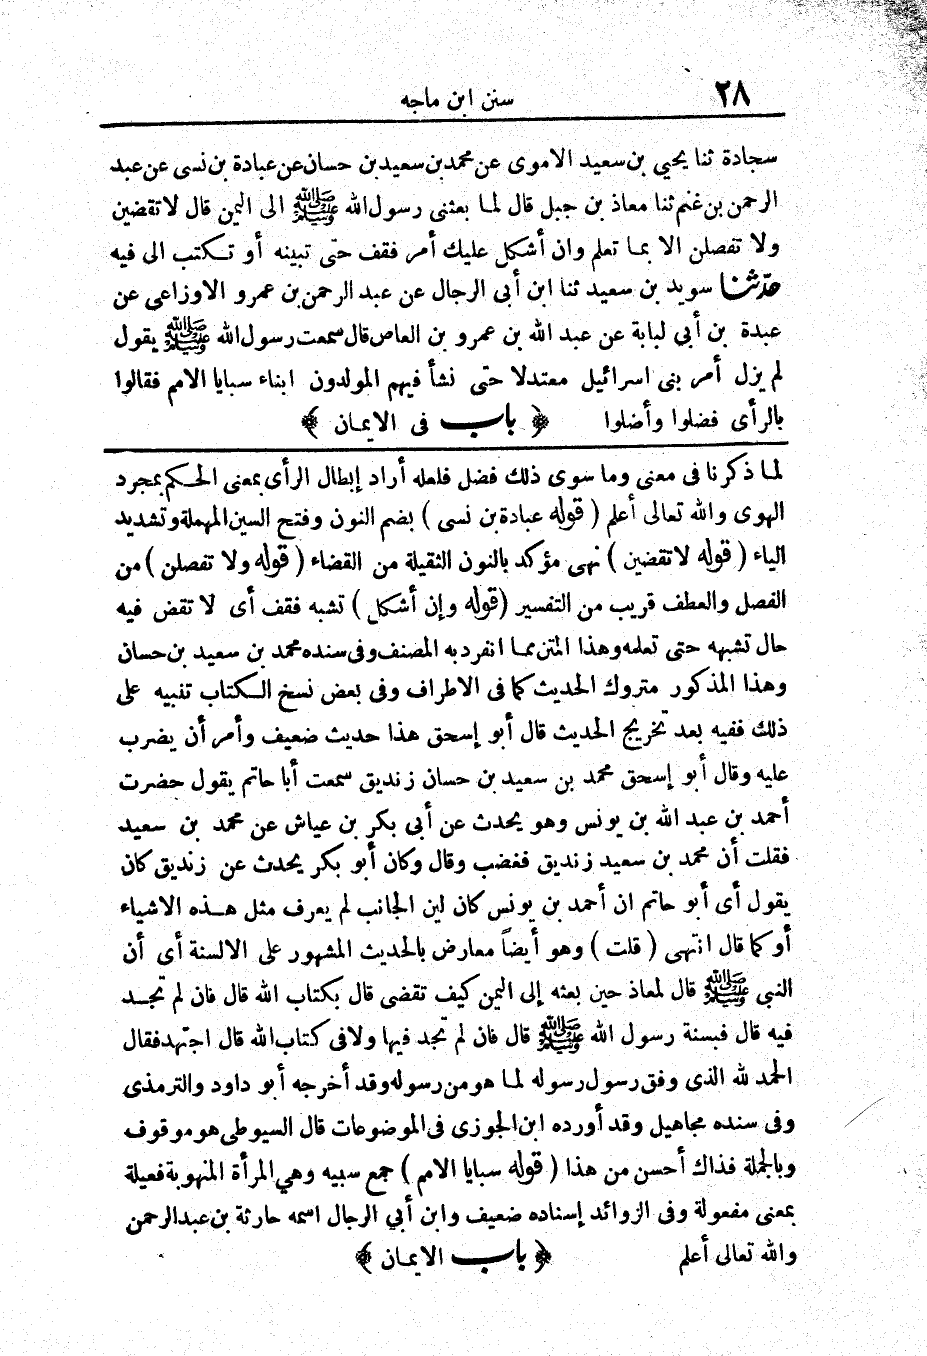 ٢٨
سنن ابن ماجه
سجادة ثنا يحيي بن سعيد الاموى عن محمد بن سعيد بن حسان عن عبادة بن نسى عن عبد
الرحمن بن غنم ثنا معاذ بن جبل قال لما بعثنى رسول الله ﷺ الى اليمن قال لا تقضين
ولا تفصلن الا بما تعلم وان أشكل عليك أمر فقف حتى تبينه أو تكتب الى فيه
حدّثنا سويد بن سعيد ثنا ابن أبي الرجال عن عبد الرحمن بن عمرو الاوزاعي عن
عبدة بن أبي لبابة عن عبد الله بن عمرو بن العاص قال سمعت رسول الله ﷺ يقول
لم يزل أمر بنى اسرائيل معتدلا حتى نشأ فيهم المولدون ابناء سبايا الامم فقالوا
بالرأى فضلوا وأضلوا ﴿ باب فى الايمان ﴾
لما ذكرنا فى معنى وما سوى ذلك فضل فلعله أراد إبطال الرأى بمعنى الحكم بمجرد
الهوى والله تعالى أعلم ( قوله عبادة بن نسى ) بضم النون وفتح السين المهملة وتشديد
الياء ( قوله لا تقضين ) نهى مؤكد بالنون الثقيلة من القضاء ( قوله ولا تفصلن ) من
الفصل والعطف قريب من التفسير ( قوله وإن أشكل ) تشبه فقف أى لا تقض فيه
حال تشبهه حتى تعلمه وهذا المتن مما انفرد به المصنف وفى سنده محمد بن سعيد بن حسان
وهذا المذكور متروك الحديث كما فى الاطراف وفى بعض نسخ الكتاب تنبيه على
ذلك ففيه بعد تخريج الحديث قال أبو إسحق هذا حديث ضعيف وأمر أن يضرب
عليه وقال أبو إسحق محمد بن سعيد بن حسان زنديق سمعت أبا حاتم يقول حضرت
أحمد بن عبد الله بن يونس وهو يحدث عن أبي بكر بن عياش عن محمد بن سعيد
فقلت أن محمد بن سعيد زنديق فغضب وقال وكان أبو بكر يحدث عن زنديق كان
يقول أى أبو حاتم ان أحمد بن يونس كان لين الجانب لم يعرف مثل هذه الاشياء
أو كما قال انتهى ( قلت ) وهو أيضاً معارض بالحديث المشهور على الالسنة أى أن
النبي ﷺ قال لمعاذ حين بعثه إلى اليمن كيف تقضى قال بكتاب الله قال فان لم تجد
فيه قال فبسنة رسول الله ﷺ قال فان لم تجد فيها ولا فى كتاب الله قال اجتهد فقال
الحمد لله الذى وفق رسول رسوله لما هو من رسوله وقد أخرجه أبو داود والترمذى
وفى سنده مجاهيل وقد أورده ابن الجوزى فى الموضوعات قال السيوطى هو موقوف
وبالجملة فذاك أحسن من هذا ( قوله سبايا الامم ) جمع سبيه وهي المرأة المنهوبة فعيلة
بمعنى مفعولة وفى الزوائد إسناده ضعيف وابن أبي الرجال اسمه حارثة بن عبد الرحمن
والله تعالى أعلم ﴿ باب الايمان ﴾